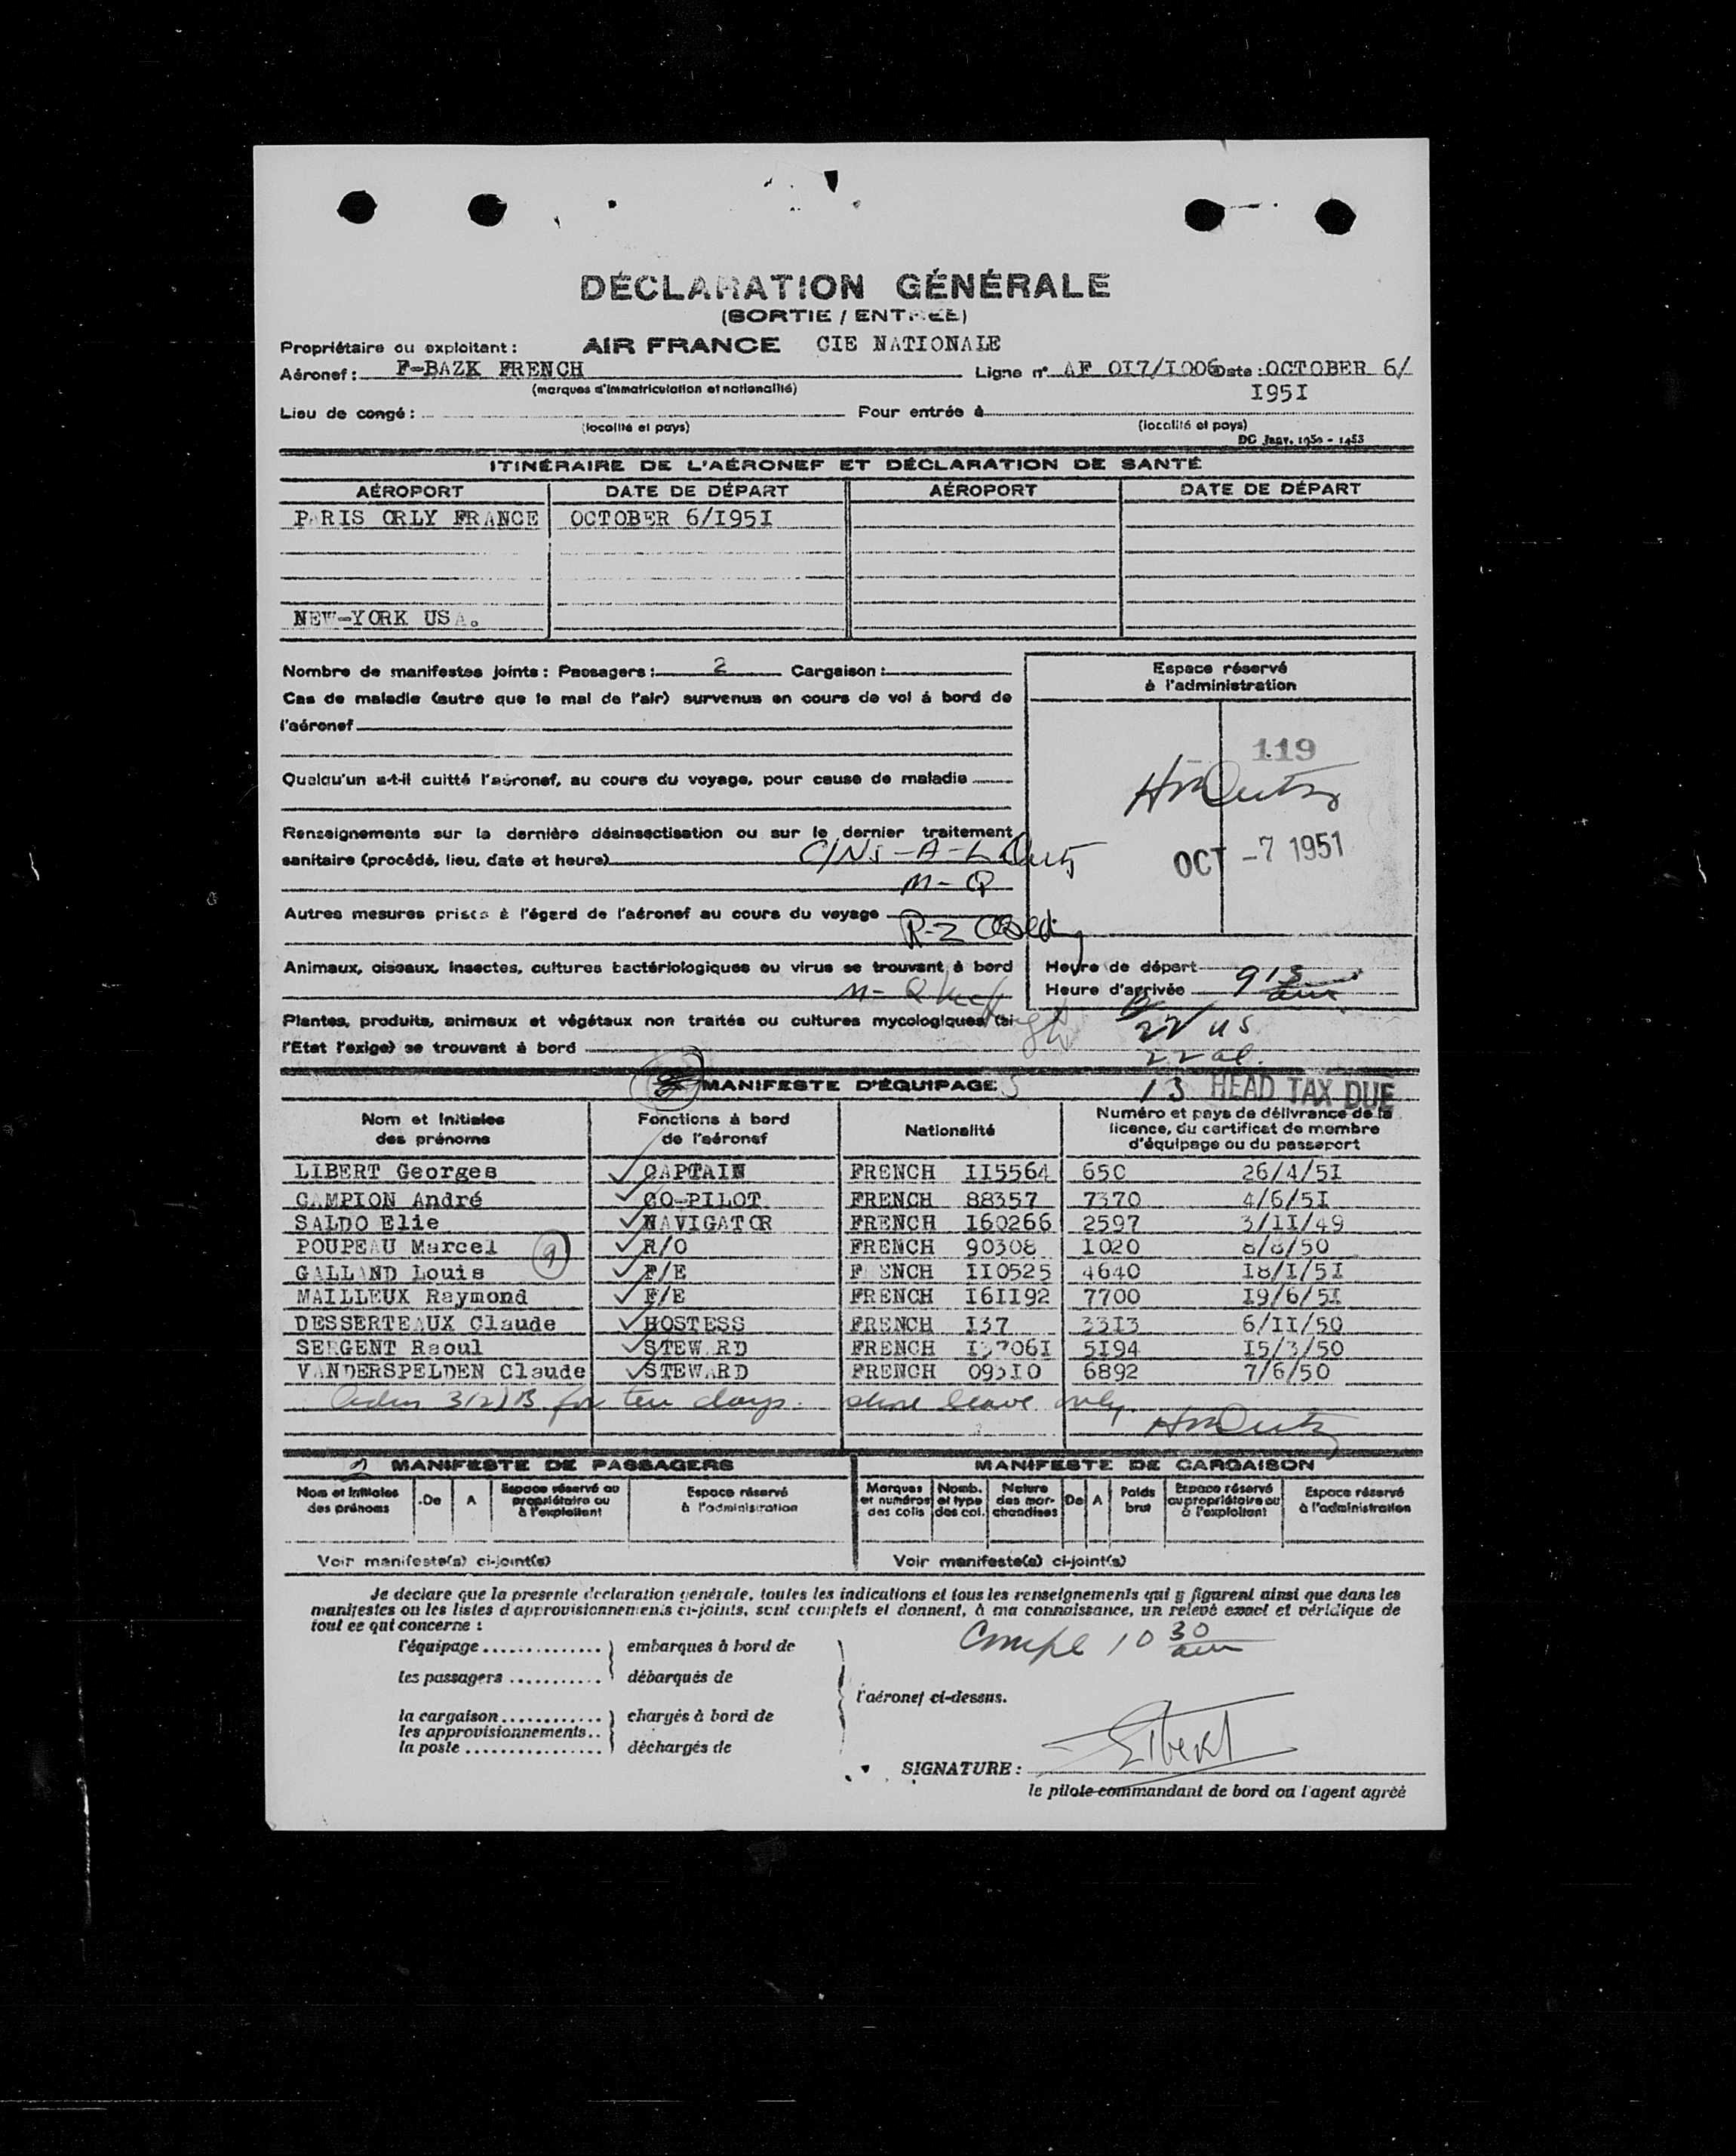 DÉCLARATION GÉNÉRALE
(SORTIE / ENTRÉE)
Propriétaire ou exploitant : AIR FRANCE CIE NATIONALE
Aéronef : F-BAZK FRENCH Ligne n° AF 0I7/I006 Date : OCTOBER 6/
(marques d'immatriculation et nationalité) I95I
Lieu de congé : Pour entrée à
(localité et pays) (localité et pays)
DG Janv. 1950 - 1453
ITINÉRAIRE DE L'AÉRONEF ET DÉCLARATION DE SANTÉ
AÉROPORT DATE DE DÉPART AÉROPORT DATE DE DÉPART
PARIS ORLY FRANCE OCTOBER 6/I95I
NEW-YORK USA.
Nombre de manifestes joints : Passagers : 2 Cargaison :
Espace réservé
à l'administration
Cas de maladie (autre que le mal de l'air) survenus en cours de vol à bord de
l'aéronef
119
Qualqu'un a-t-il quitté l'aéronef, au cours du voyage, pour cause de maladie
Renseignements sur la dernière désinsectisation ou sur le dernier traitement
sanitaire (procédé, lieu, date et heure)
OCT -7 1951
M - Q
Autres mesures prises à l'égard de l'aéronef au cours du voyage
Animaux, oiseaux, insectes, cultures bactériologiques ou virus se trouvant à bord
Heure de départ
Heure d'arrivée 9 15 am
Plantes, produits, animaux et végétaux non traités ou cultures mycologiques (si
22 US
l'Etat l'exige) se trouvant à bord
22 al.
MANIFESTE D'ÉQUIPAGE S 13 HEAD TAX DUE
Nom et Initiales des prénoms Fonctions à bord de l'aéronef Nationalité Numéro et pays de délivrance de la licence, du certificat de membre d'équipage ou du passeport
LIBERT Georges CAPTAIN FRENCH II5564 650 26/4/5I
CAMPION André CO-PILOT FRENCH 88357 7370 4/6/5I
SALDO Elie NAVIGATOR FRENCH I60266 2597 3/II/49
POUPEAU Marcel 9 R/O FRENCH 90308 I020 8/8/50
GALLAND Louis F/E FRENCH II0525 4640 I8/I/5I
MAILLEUX Raymond F/E FRENCH I6II92 7700 I9/6/5I
DESSERTEAUX Claude HOSTESS FRENCH I37 33I3 6/II/50
SERGENT Raoul STEWARD FRENCH 5I94 I5/3/50
VANDERSPELDEN Claude STEWARD FRENCH 6892 7/6/50
3(2)B for ten days. shore leave only.
2 MANIFESTE DE PASSAGERS MANIFESTE DE CARGAISON
Nom et Initiales des prénoms De A Espace réservé au propriétaire ou à l'exploitant Espace réservé à l'administration Marques et numéros des colis Nomb. et type des col. Nature des marchandises De A Poids brut Espace réservé au propriétaire ou à l'exploitant Espace réservé à l'administration
Voir manifeste(s) ci-joint(s) Voir manifeste(s) ci-joint(s)
Je declare que la presente declaration genérale, toutes les indications et tous les renseignements qui y figurent ainsi que dans les
manifestes ou les listes d'approvisionnements ci-joints, sont complets et donnent, à ma connaissance, un relevé exact et véridique de
tout ce qui concerne :
Compl 10 30 am
l'équipage embarques à bord de
les passagers débarqués de
l'aéronef ci-dessus.
la cargaison chargés à bord de
les approvisionnements
la poste déchargés de
Libert
SIGNATURE :
le pilote commandant de bord ou l'agent agréé